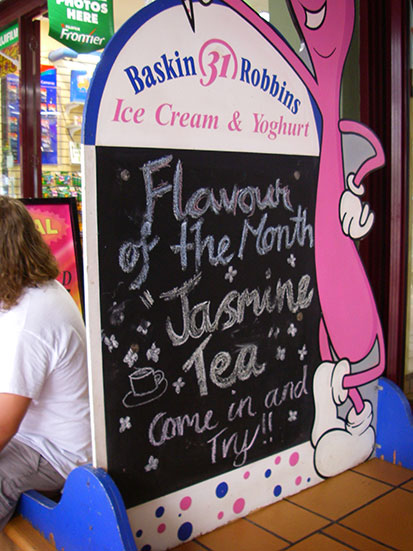 PHOTOS
HERE
Frontier
Baskin 31 Robbins
Ice Cream & Yoghurt
Flavour
of the Month
"Jasmine
Tea"
come in and
Try!!